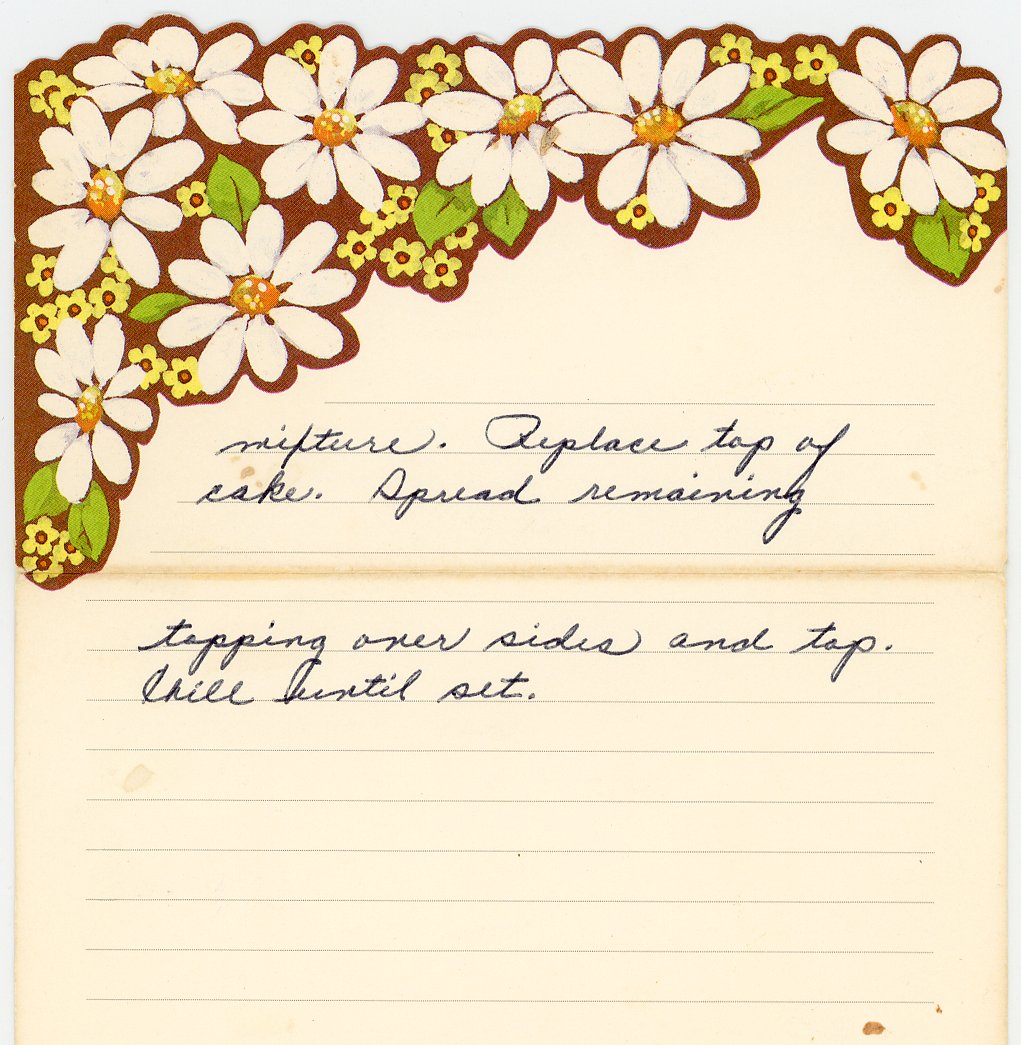 mixture. Replace top of
cake. Spread remaining
topping over sides and top.
Chill until set.